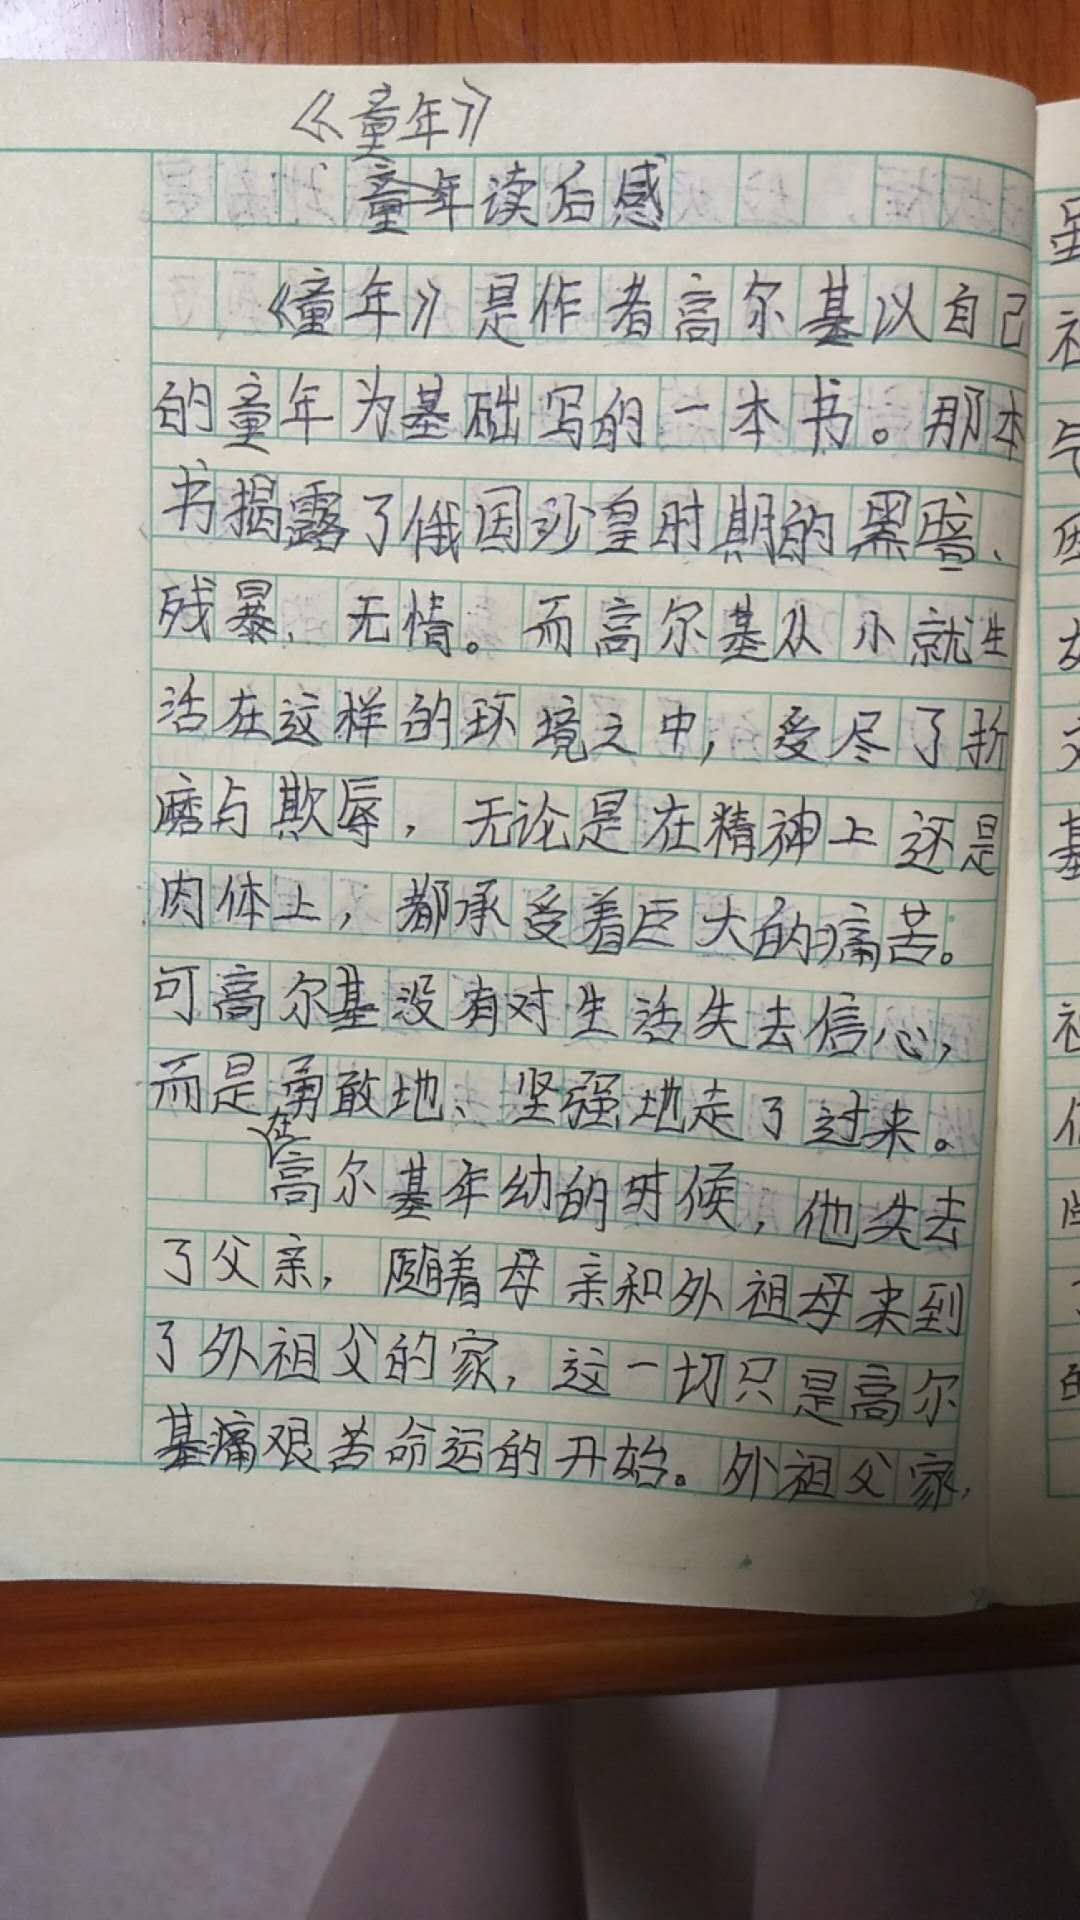 《童年》
童年读后感
《童年》是作者高尔基以自己
的童年为基础写的一本书。那本
书揭露了俄国沙皇时期的黑暗、
残暴、无情。而高尔基从小就生
活在这样的环境之中，受尽了折
磨与欺辱，无论是在精神上还是
肉体上，都承受着巨大的痛苦。
可高尔基没有对生活失去信心，
而是勇敢地、坚强地走了过来。
在高尔基年幼的时候，他失去
了父亲，随着母亲和外祖母来到
了外祖父的家，这一切只是高尔
基痛艰苦命运的开始。外祖父家，